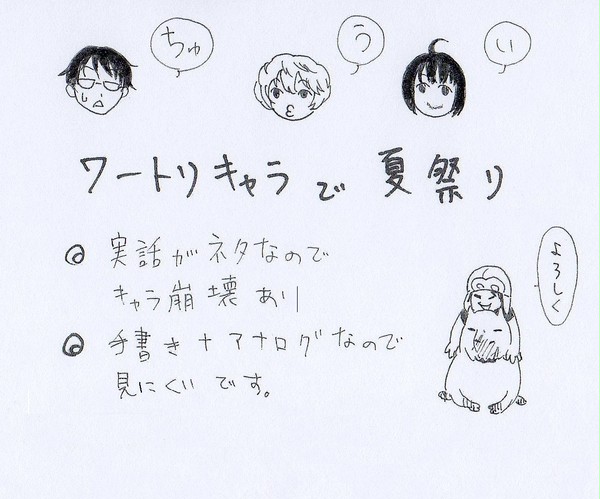 ちゅ
う
い
ワートリキャラで夏祭り
◎ 実話がネタなので
キャラ崩壊あり
◎ 手書き+アナログなので
見にくいです。
よろしく